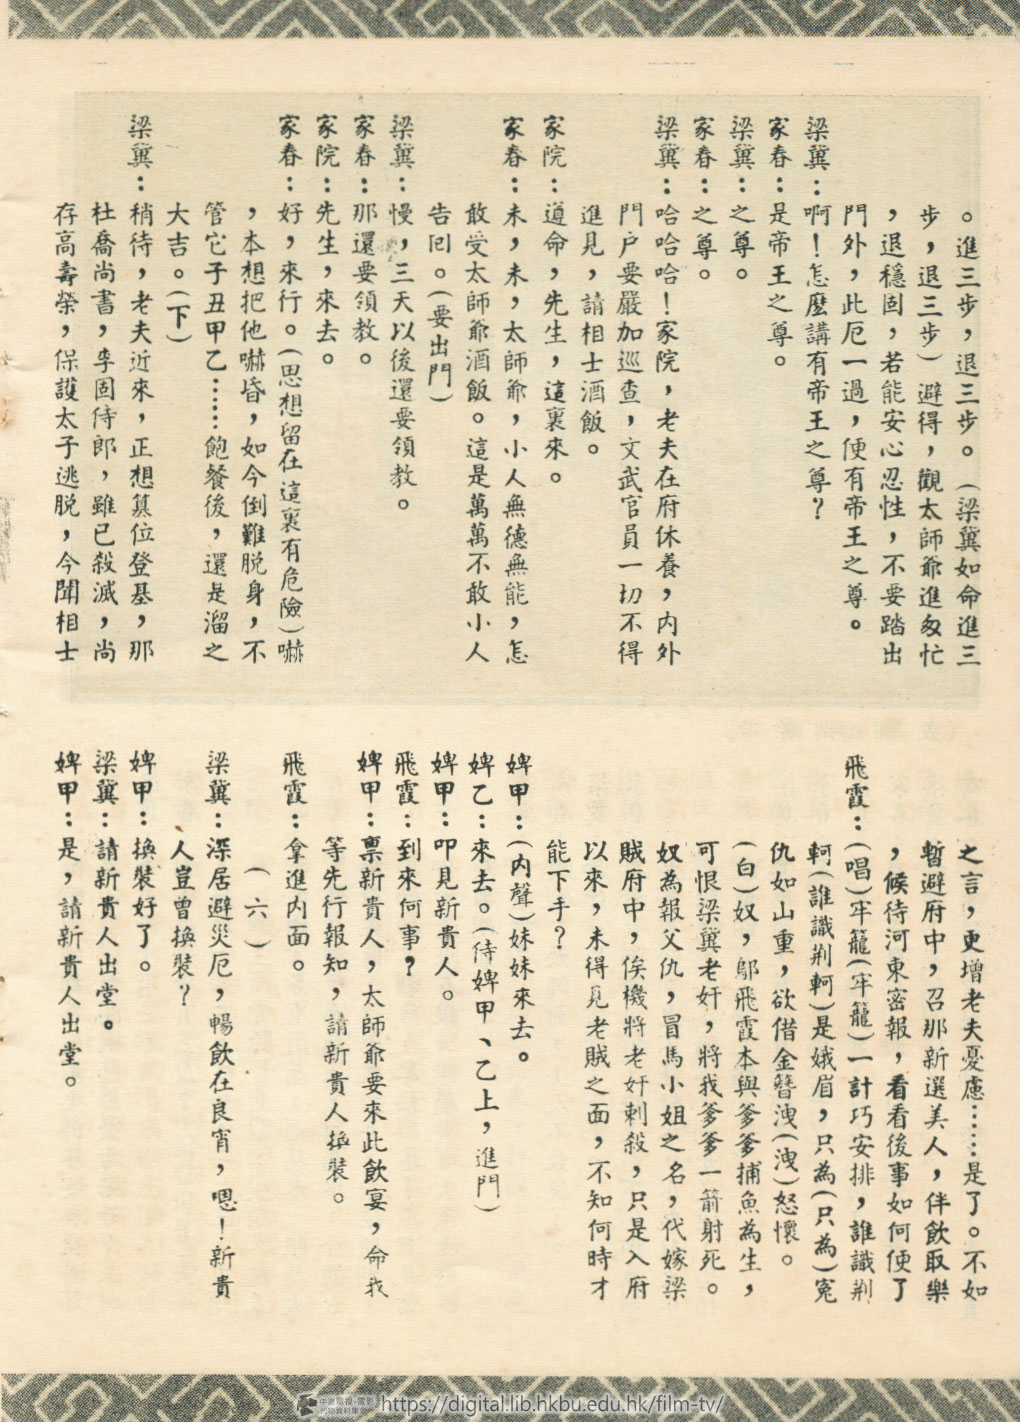 。進三步，退三步。（梁冀如命進三
步，退三步）避得，觀太師爺進匆忙
，退穩固，若能安心忍性，不要踏出
門外，此厄一過，便有帝王之尊。
梁冀：啊！怎麼講有帝王之尊？
家春：是帝王之尊。
梁冀：之尊。
家春：之尊。
梁冀：哈哈哈！家院，老夫在府休養，內外
門户要嚴加巡查，文武官員一切不得
進見，請相士酒飯。
家院：遵命，先生，這裏來。
家春：未，未，太師爺，小人無德無能，怎
敢受太師爺酒飯。這是萬萬不敢小人
告囘。（要出門）
梁冀：慢，三天以後還要領教。
家春：那還要領教。
家院：先生，來去。
家春：好，來行。（思想留在這裏有危險）嚇
，本想把他嚇昏，如今倒難脫身，不
管它子丑甲乙……飽餐後，還是溜之
大吉。（下）
梁冀：稍待，老夫近來，正想篡位登基，那
杜喬尚書，李固侍郎，雖已殺滅，尚
存高壽榮，保護太子逃脫，今聞相士
之言，更增老夫憂慮……是了。不如
暫避府中，召那新選美人，伴飲取樂
，候待河東密報，看看後事如何便了
飛霞：（唱）牢籠（牢籠）一計巧安排，誰識荆
軻（誰識荆軻）是娥眉，只為（只為）寃
仇如山重，欲借金簪洩（洩）怒懷。
（白）奴，鄔飛霞本與爹爹捕魚為生，
可恨梁冀老奸，將我爹爹一箭射死。
奴為報父仇，冒馬小姐之名，代嫁梁
賊府中，俟機將老奸刺殺，只是入府
以來，未得見老賊之面，不知何時才
能下手？
婢甲：（內聲）妹妹來去。
婢乙：來去。（侍婢甲、乙上，進門）
婢甲：叩見新貴人。
飛霞：到來何事？
婢甲：禀新貴人，太師爺要來此飲宴，命我
等先行報知，請新貴人換裝。
飛霞：拿進內面。
（六）
梁冀：深居避災厄，暢飲在良宵，嗯！新貴
人豈曾換裝？
婢甲：換裝好了。
梁冀：請新貴人出堂。
婢甲：是，請新貴人出堂。
中南電視·電影
刊物資料庫
https://digital.lib.hkbu.edu.hk/film-tv/